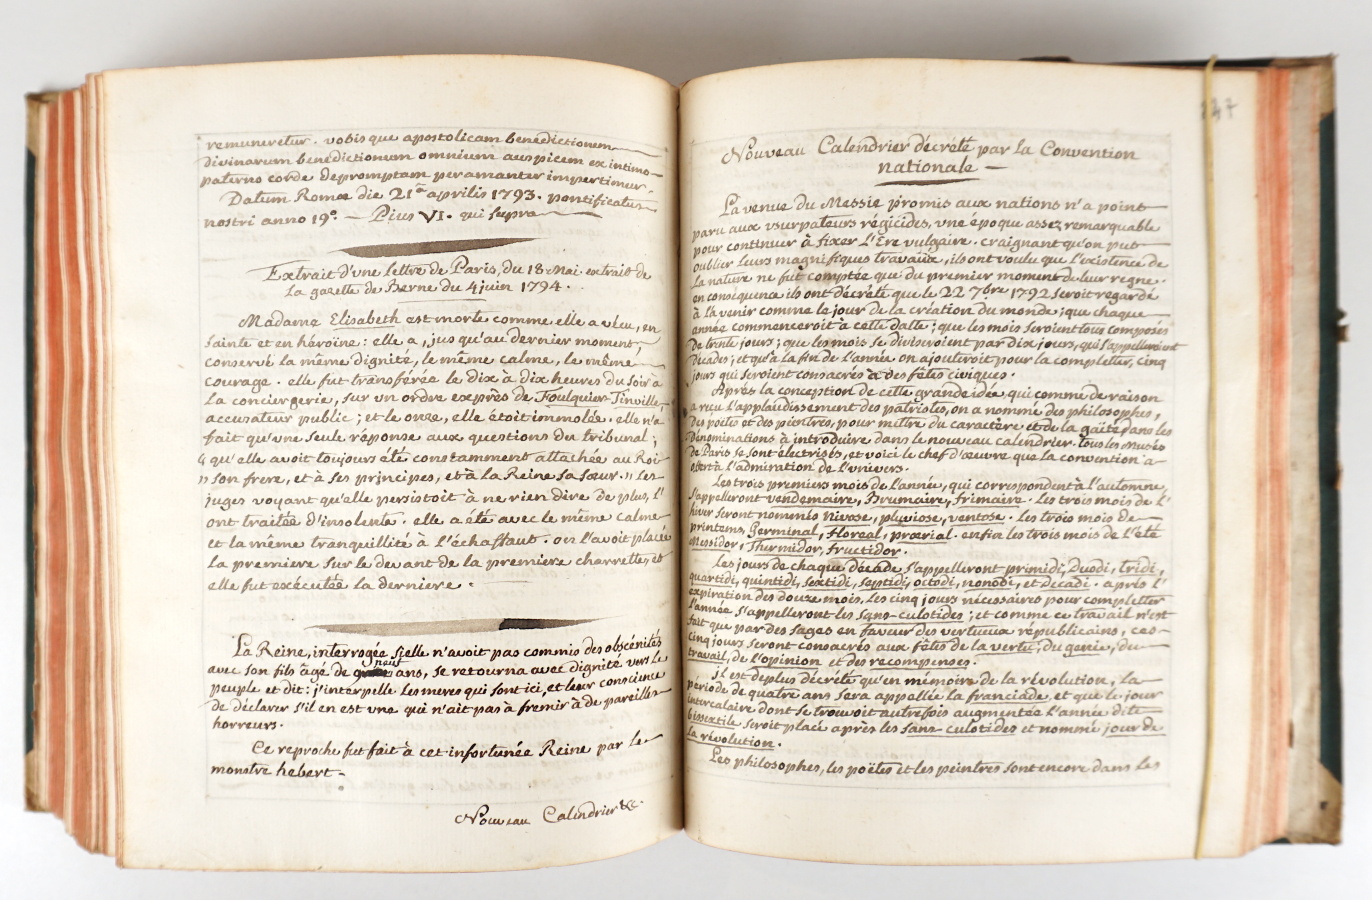 remuneretur. vobis que apostolicam benedictionem
divinarum benedictionum omnium auspicem ex intimo
paterno corde depromptam peramanter impertimur.
Datum Romæ die 21ª aprilis 1793. pontificatus
nostri anno 19º. — Pius VI. qui supra
Extrait d'une lettre de Paris, du 18 Mai. extrait de
la gazette de Berne du 4 juin 1794.
Madame Elisabeth est morte comme elle a vécu, en
sainte et en héroïne: elle a, jus qu'au dernier moment,
conservé la même dignité, le même calme, le même
courage. elle fut transférée le dix à dix heures du soir à
la conciergerie, sur un ordre exprès de Foulquier-Tinville,
accusateur public; et le onze, elle étoit immolée. elle n'a
fait qu'une seule réponse aux questions du tribunal;
"qu'elle avoit toujours été constamment attachée au Roi
" son frere, et à ses principes, et à la Reine sa sœur." Les
juges voyant qu'elle persistoit à ne rien dire de plus, l'
ont traitée d'insolente. elle a été avec le même calme
et la même tranquillité à l'échaffaut. on l'avoit placée
la premiere sur le devant de la premiere charrette, et
elle fut exécutée la derniere.
La Reine, interrogée si elle n'avoit pas commis des obscénités
avec son fils âgé de neuf ans, se retourna avec dignité vers le
peuple et dit: j'interpelle les meres qui sont ici, et leur conscience
de déclarer s'il en est une qui n'ait pas à fremir à de pareilles
horreurs.
Ce reproche fut fait à cet infortunée Reine par le
monstre hebert.
Nouveau Calendrier &c.
247
Nouveau Calendrier décrété par la Convention
nationale —
La venue du Messie promis aux nations n'a point
paru aux usurpateurs régicides, une époque assez remarquable
pour continuer à fixer l'Ere vulgaire. craignant qu'on put
oublier leurs magnifiques travaux, ils ont voulu que l'existence de
la nature ne fut comptée que du premier moment de leur regne.
en conséquence ils ont décrété que le 22 7bre 1792 seroit regardé
à l'avenir comme le jour de la création du monde; que chaque
année commenceroit à cette datte; que les mois seroient tous composés
de trente jours; que les mois se diviseroient par dix jours, qui s'appelleroient
Décades; et qu'à la fin de l'année on ajouteroit pour la completter, cinq
jours qui seroient consacrés à des fêtes civiques.
Après la conception de cette grande idée, qui comme de raison
a reçu l'applaudissement des patriotes, on a nommé des philosophes,
des poëtes et des peintres, pour mettre du caractère et de la gaîté dans les
Dénominations à introduire dans le nouveau calendrier. tous les Musées
de Paris se sont électrisés, et voici le chef d'œuvre que la convention a
offert à l'admiration de l'univers.
Les trois premiers mois de l'année, qui correspondent à l'automne,
s'appelleront vendemaire, Brumaire, frimaire. Les trois mois de l'
hiver seront nommés Nivose, pluviose, ventose. Les trois mois de
printems, Germinal, floreal, prærial. enfin les trois mois de l'été
Messidor, Thermidor, fructidor.
Les jours de chaque décade s'appelleront primidi, Duodi, tridi,
quartidi, quintidi, sextidi, septidi, octodi, nonodi, et Decadi. après l'
expiration des douze mois, les cinq jours nécessaires pour completter
l'année s'appelleront les sans-culotides; et comme ce travail n'est
fait que par des sages en faveur des vertueux républicains, ces
cinq jours seront consacrés aux fêtes de la vertu, du genie, du
travail, de l'opinion et des recompenses.
il est de plus décrété qu'en mémoire de la révolution, la
période de quatre ans sera appellée la franciade, et que le jour
intercalaire dont se trouvoit autrefois augmentée l'année dite
bissextile seroit placé après les sans-culotides et nommé jour de
la révolution.
Les philosophes, les poëtes et les peintres sont encore dans les